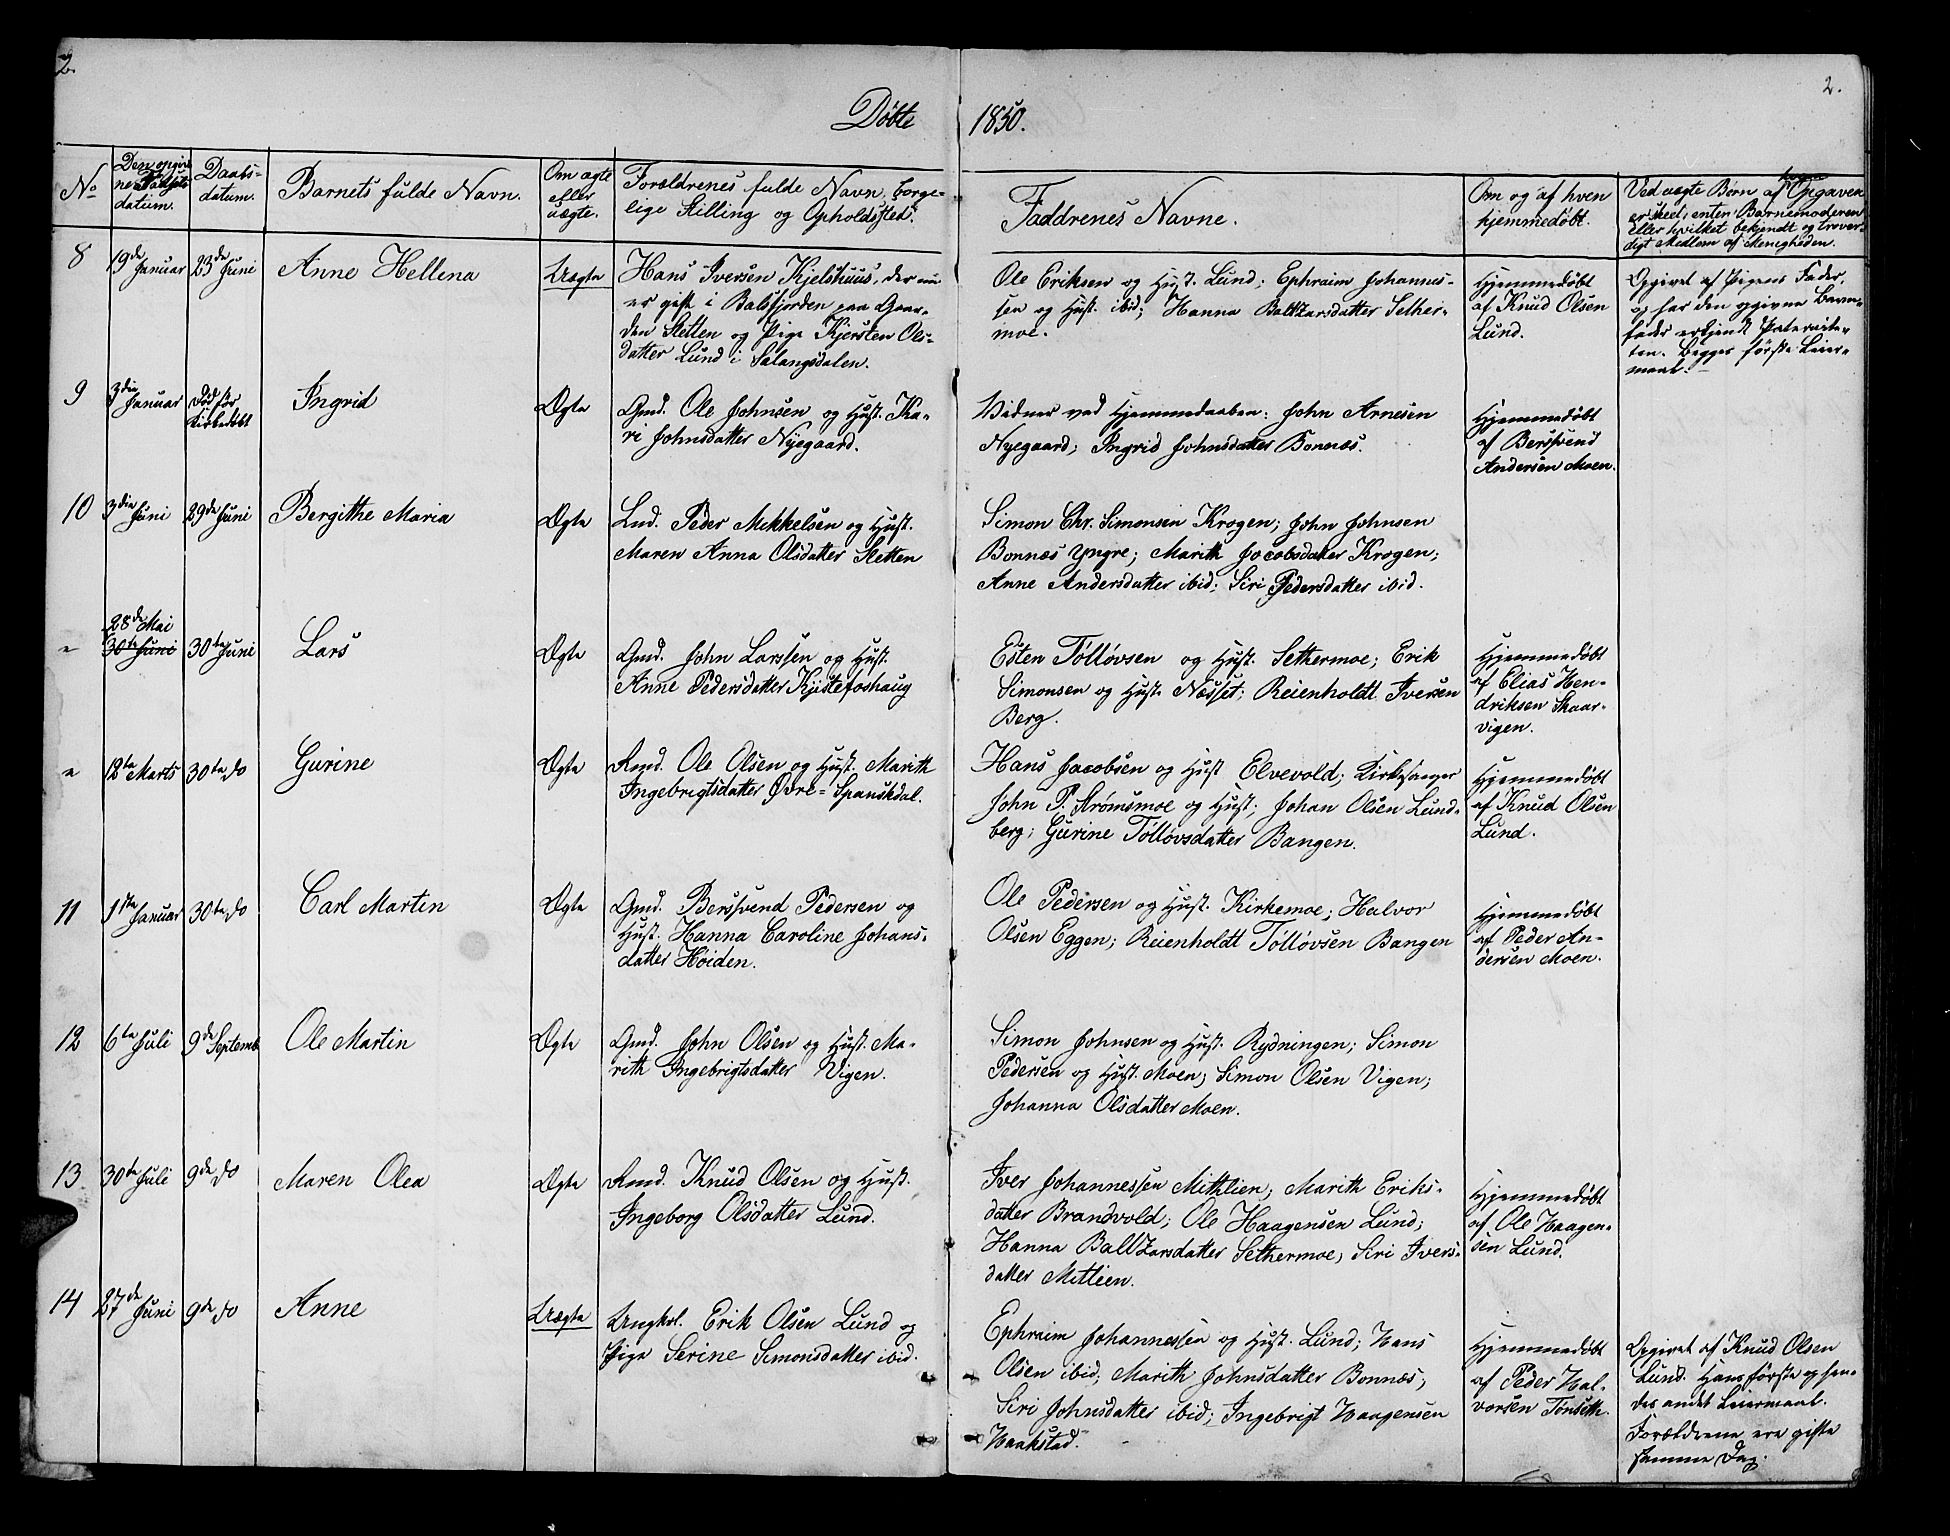 2.
2.
Döbte 1850.
No
Den opgivne Fødselsdatum.
Daabsdatum.
Barnets fulde Navn.
Om ægte eller uægte.
Forældrenes fulde Navn, borgelige Stilling og Opholdssted.
Faddrenes Navne.
Om og af hvem hjemmedøbt.
Ved uægte Børn af hvem Opgaven er skeet, enten Barnemoderen eller hvilket bekjendt og troværdigt Medlem af Menigheden.
8
19de Januar
23de Juni
Anne Hellena
Uægte
Hans Iversen Kjelshuus, der nu
er gift i Balsfjorden paa Gaar-
den Sletten og Pige Kjersten Ols-
datter Lund i Salangsdalen.
Ole Eriksen og Hust. Lund; Ephraim Johannes-
sen og Hust. ibid; Hanna Baltzarsdatter Sether-
moe.
Hjemmedöbt
af Knud Olsen
Lund.
Opgivet af Pigens Fader,
og har den opgivne Barne-
fader erkjendt Paternite-
ten. Begges förste Leier-
maal.
9
3die Januar
Död før
Kirkedöbt
Ingrid
Ægte
Gmd. Ole Johnsen og Hust. Ka-
ri Johnsdatter Nyegaard.
Vidner ved Hjemmedaaben: John Arnesen
Nyegaard; Ingrid Johnsdatter Bonnæs.
Hjemmedöbt
af Bersvend
Andersen Moen.
10
3die Juni
29de Juni
Bergithe Maria
Ægte
Lnd. Peder Mikkelsen og Hust.
Maren Anna Olsdatter Sletten
Simon Chr. Simonsen Krogen; John Johnsen
Bonnæs yngre; Marith Jacobsdatter Krogen;
Anne Andersdatter ibid; Siri Pedersdatter ibid.
"
28de Mai
30te Juni
30te Juni
Lars
Ægte
Gmd. John Larssen og Hust.
Anne Pedersdatter Kistefoshaug
Esten Tölløvsen og Hust. Sethermoe; Erik
Simonsen og Hust. Næsset; Reienholdt Iversen
Berg.
Hjemmedöbt
af Elias Hen-
driksen Skaar-
vigen.
"
12te Marts
30te do
Gurine
Ægte
Rmd. Ole Olsen og Hust. Marith
Ingebrigtsdatter Øvre-Spanskdal.
Hans Jacobsen og Hust Elvevold; Kirkesanger
John P. Strømsmoe og Hust; Johan Olsen Lund-
berg; Gurine Tölløvsdatter Bangen.
Hjemmedöbt
af Knud Olsen
Lund.
11
1ste Januar
30te do
Carl Martin
Ægte
Gmd. Bersvend Pedersen og
Hust. Hanna Caroline Johans-
datter Høiden.
Ole Pedersen og Hust. Kirkemoe; Halvor
Olsen Eggen; Reienholdt Tölløvsen Bangen
Hjemmedöbt
af Peder An-
dersen Moen.
12
6te Juli
9de Septemb
Ole Martin
Ægte
Gmd. John Olsen og Hust. Ma-
rith Ingebrigtsdatter Vigen.
Simon Johnsen og Hust. Rydningen; Simon
Pedersen og Hust. Moen; Simon Olsen Vigen;
Johanna Olsdatter Moen.
13
30te Juli
9de do
Maren Olea
Ægte
Rmd. Knud Olsen og Hust.
Ingeborg Olsdatter Lund.
Iver Johannessen Mithlien; Marith Eriks-
datter Brandvold; Ole Haagensen Lund;
Hanna Baltzarsdatter Sethermoe; Siri Ivers-
datter Mitlien.
Hjemmedöbt
af Ole Haagen-
sen Lund.
14
27de Juni
9de do
Anne
Uægte
Ungkal. Erik Olsen Lund og
Pige Serine Simonsdatter ibid.
Ephraim Johannessen og Hust. Lund; Hans
Olsen ibid; Marith Johnsdatter Bonnæs;
Siri Johnsdatter ibid; Ingebrigt Haagensen
Haakstad.
Hjemmedöbt
af Peder Hal-
vorsen Tønseth.
Opgivet af Knud Olsen
Lund. Hans förste og hen-
des andet Leiermaal.
Forældrene ere gifte
samme Dag.